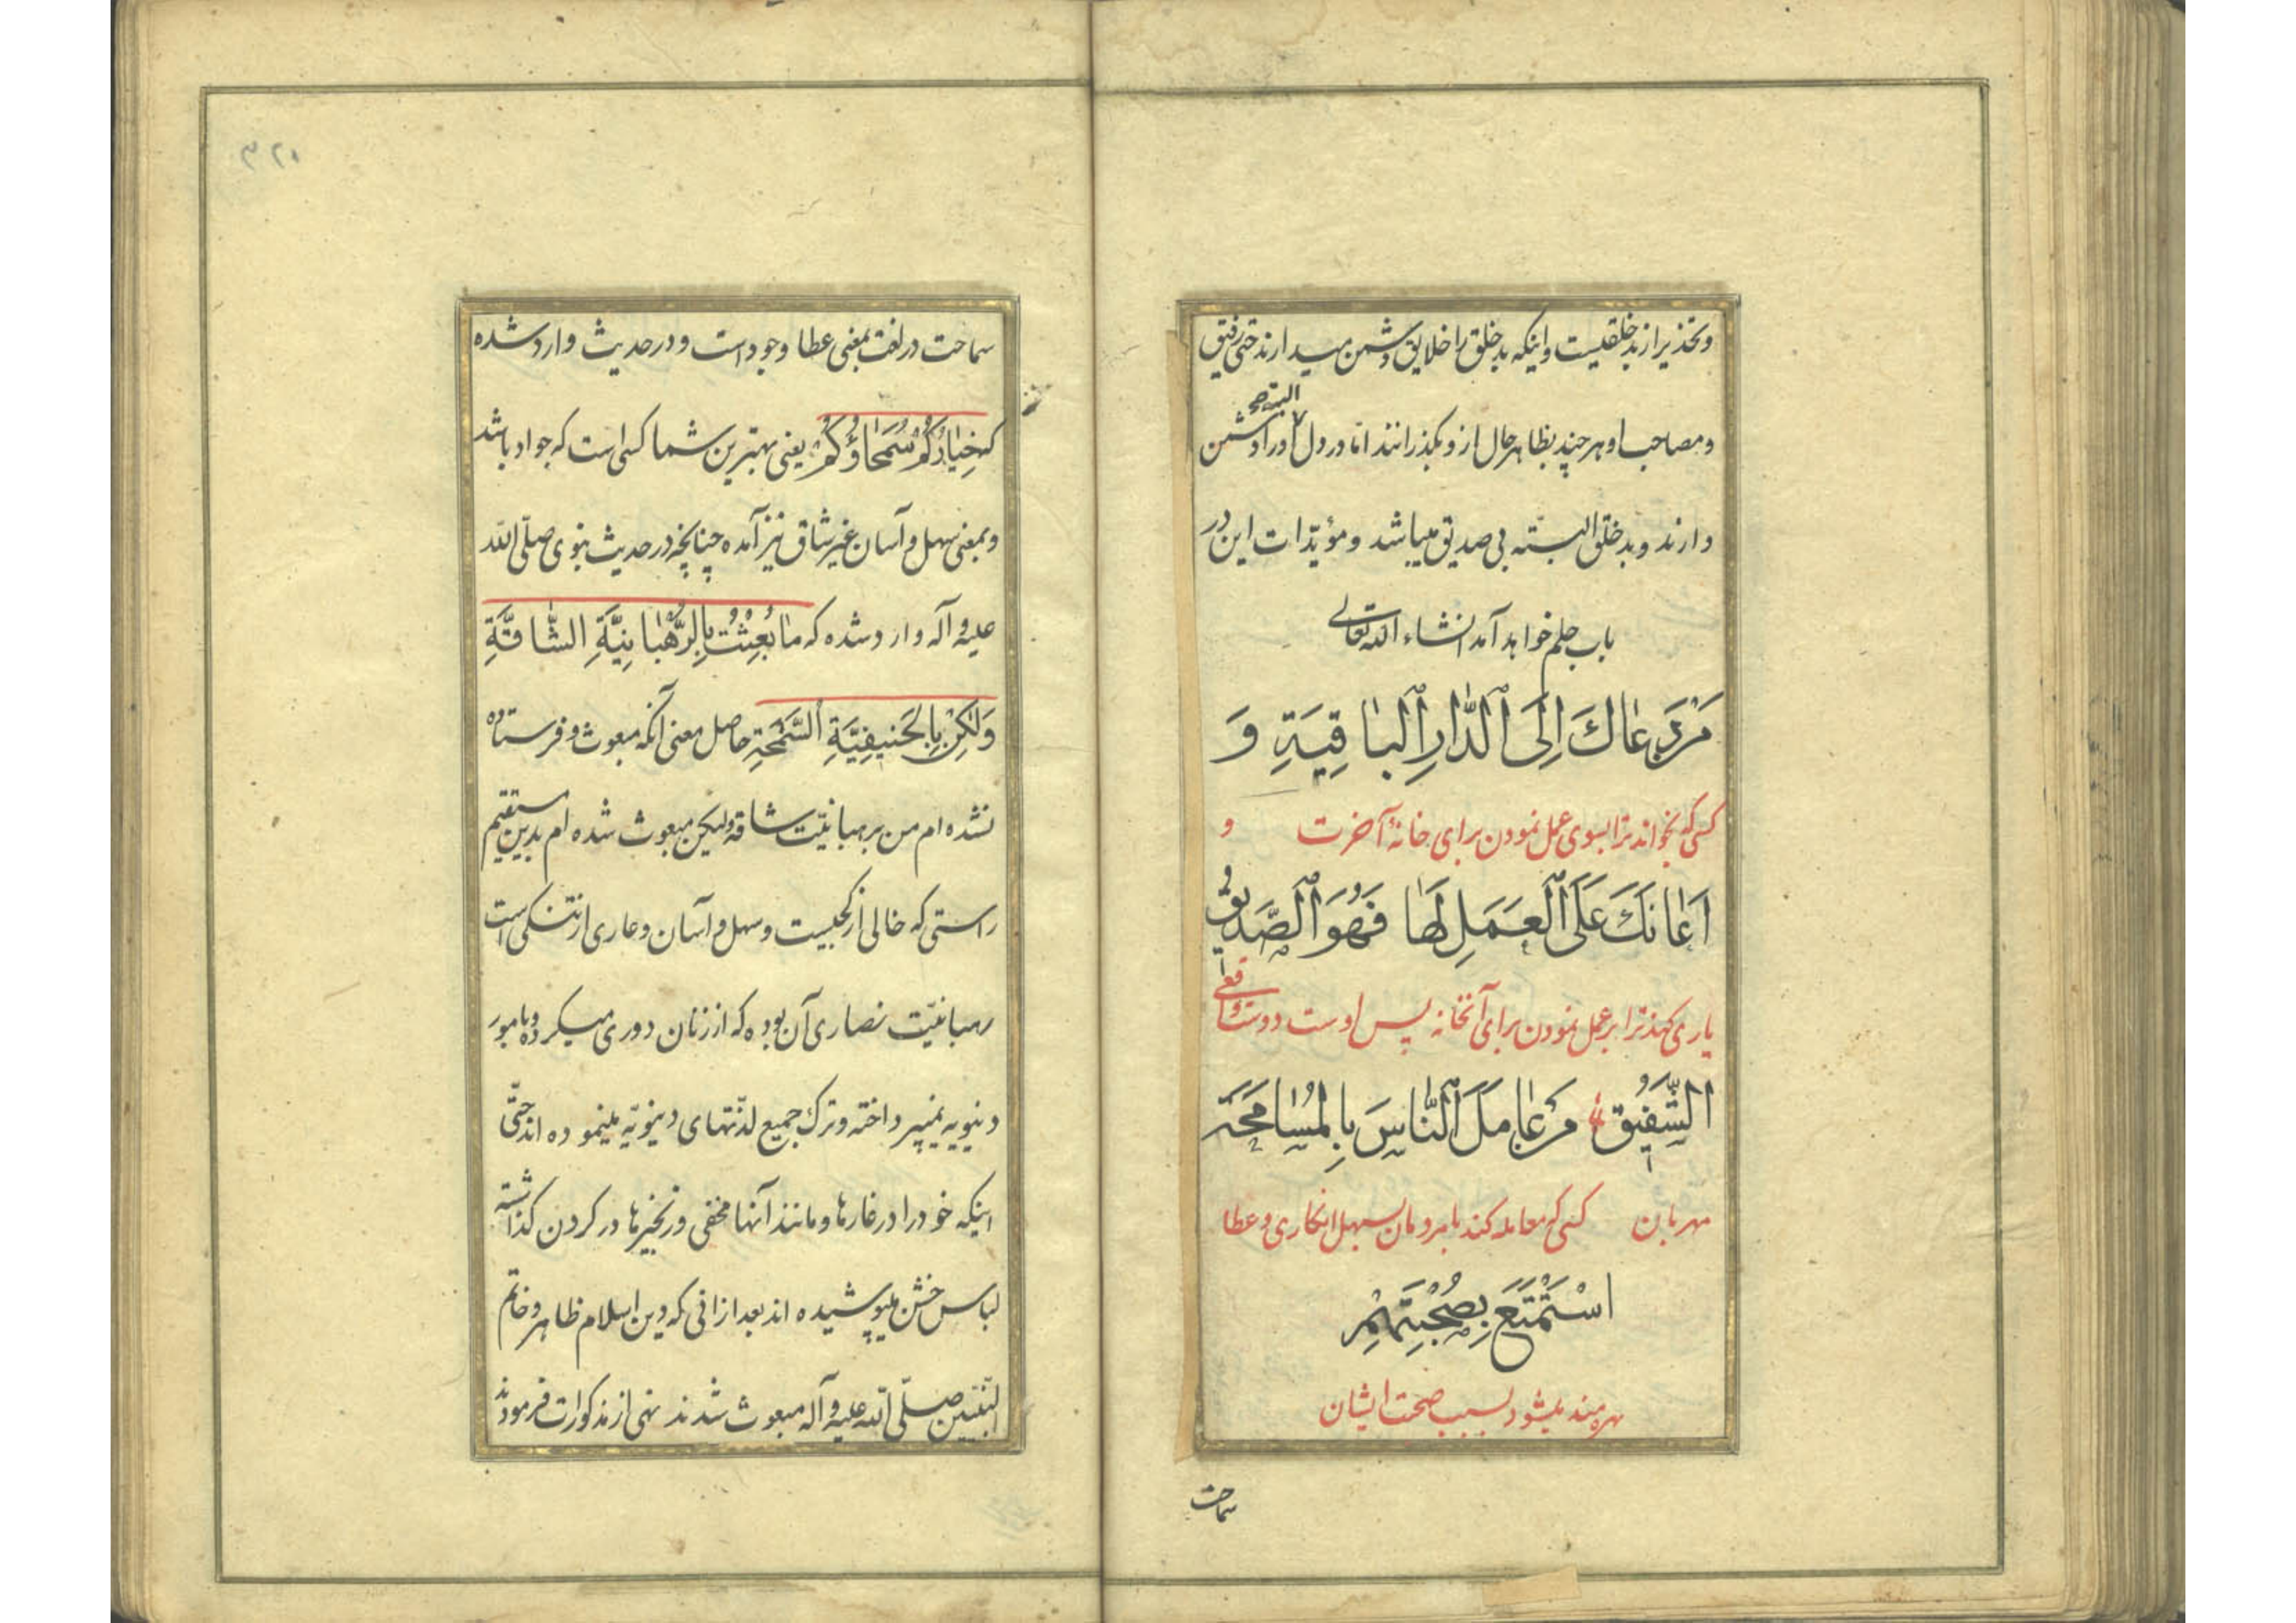 وتحذیر از بدخلقیست واینکه بدخلق را خلایق دشمن میدارند حتی رفیق
البته صح
ومصاحب او هر چند بظاهر حال ازو بگذرانند اما در دل او را دشمن
دارند وبدخلق البته بی صدیق میباشد ومؤیّدات این در
باب حلم خواهد آمد انشاء الله تعالی
مَنْ دَعٰاكَ اِلَى ٱلدّٰارِ ٱلْبٰاقِيَةِ وَ
کسی که بخواند ترا بسوی عمل نمودن برای خانهٔ آخرت و
اَعٰانَكَ عَلَى ٱلْعَمَلِ لَهٰا فَهُوَ ٱلصَّدِيقُ
یاری کند ترا بر عمل نمودن برای آنخانه پس اوست دوست واقعی
الشَّفِيقُ مَنْ عٰامَلَ ٱلنّٰاسَ بِالْمُسٰامَحَةِ
مهربان کسی که معامله کند با مردمان بسهل انکاری و عطا
اسْتَمْتَعَ بِصُحْبَتِهِمْ
بهره مند میشود بسبب صحبت ایشان
سماحت
۳۲۰
سماحت در لغت بمعنی عطا وجود است ودر حدیث وارد شده
که خِيٰارُكُمْ سُمَحٰاؤُكُمْ یعنی بهترین شما کسی است که جواد باشد
وبمعنی سهل وآسان غیر شاق نیز آمده چنانچه در حدیث نبوی صلّی الله
علیه وآله وارد شده که مٰا بُعِثْتُ بِالرَّهْبٰانِيَّةِ الشّٰاقَّةِ
وَلٰكِنْ بِالْحَنِيفِيَّةِ ٱلسَّمْحَةِ حاصل معنی آنکه مبعوث وفرستاده
نشده ام من برهبانیّت شاقه ولیکن مبعوث شده ام بدین مستقیم
راستی که خالی از کجیست وسهل وآسان وعاری از تنگی است
رهبانیّت نصاری آن بوده که از زنان دوری میکرده وبامور
دنیویه نمیپرداخته وترك جمیع لذّتهای دنیویّه مینموده اند حتّی
اینکه خود را در غارها ومانند آنها مخفی وزنجیرها در کردن کذاشته
لباس خشن میپوشیده اند بعد از انی که دین اسلام ظاهر وخاتم
النّبیّین صلّی الله علیه وآله مبعوث شدند نهی از مذکورات فرمودند